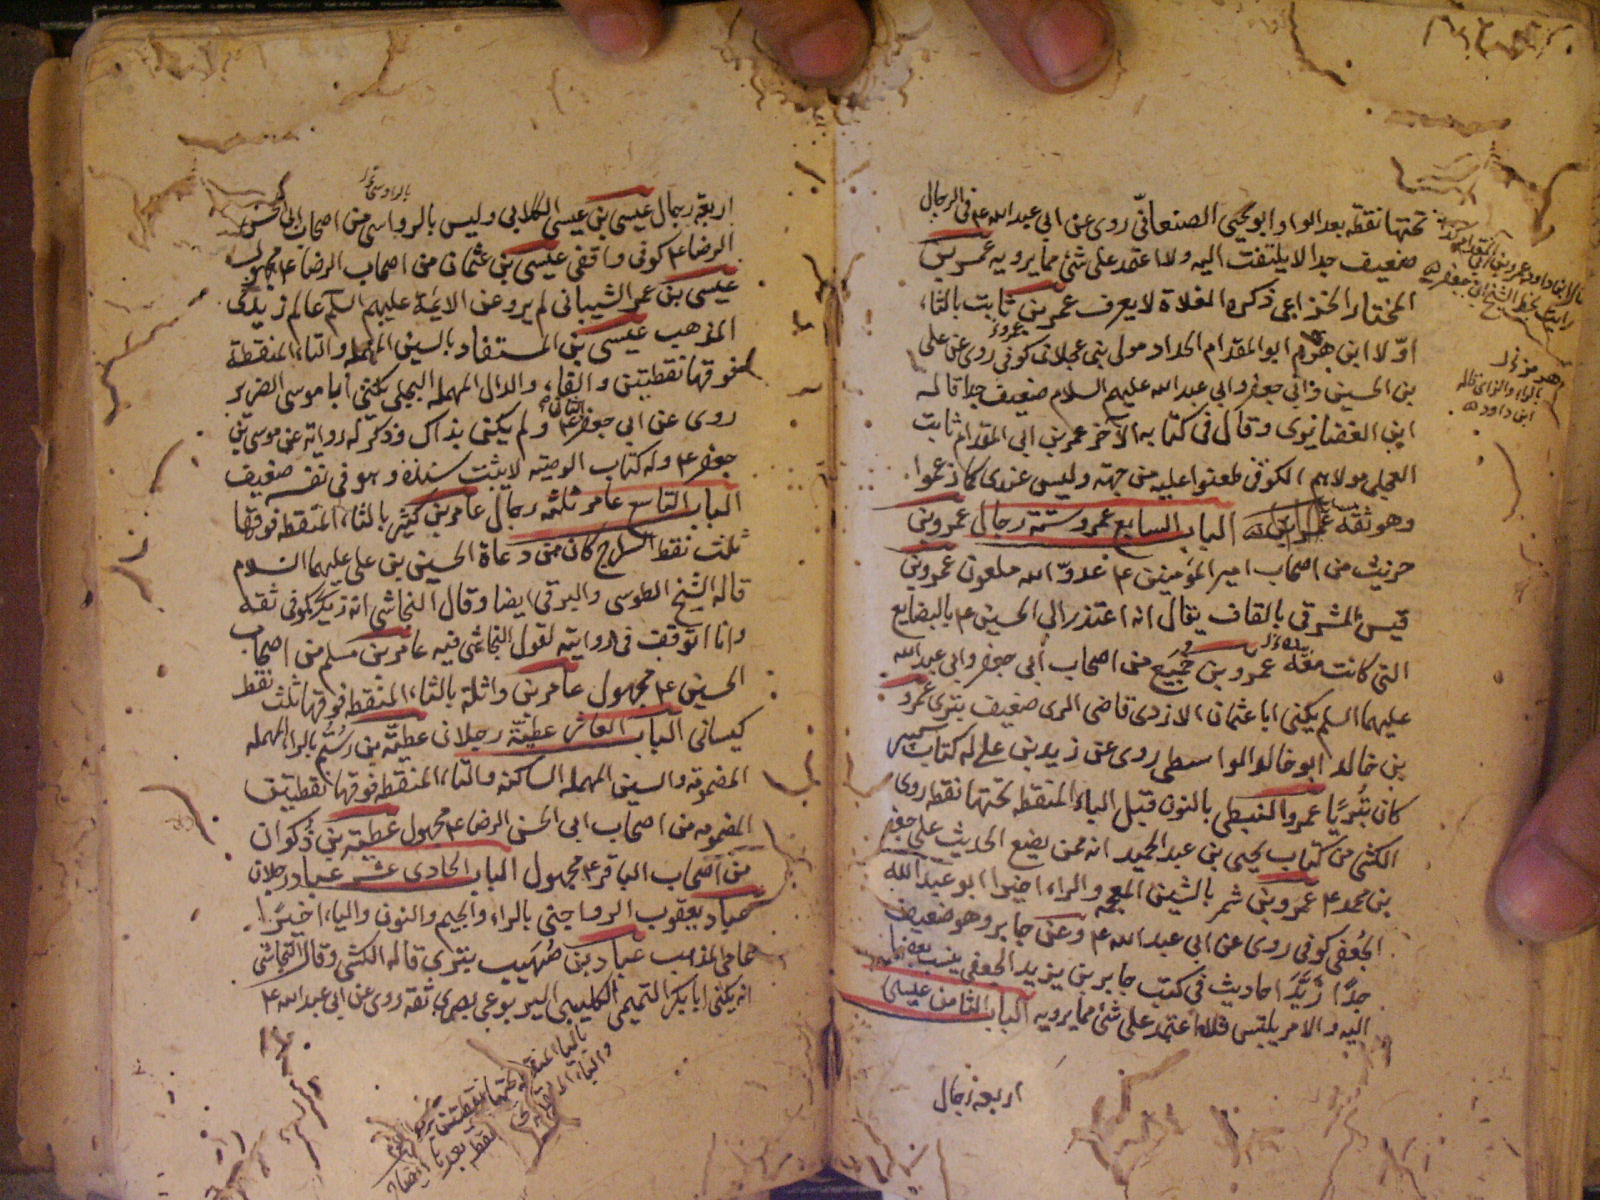 تحتها نقطة بعد الواو ابو يحيى الصنعانى روى عن ابى عبد الله ع فى الرجال
ضعيف جدا لا يلتفت اليه ولا اعتمد على شئ مما يرويه عمر بن
المختار الخزاعى ذكره الغلاة لا يعرف عمر بن ثابت بالثاء
اولا ابن هرم ابو المقدام الحداد مولى بنى عجلان كوفى روى عن على
بن الحسين وابى جعفر وابى عبد الله عليهم السلام ضعيف جدا قاله
ابن الغضايرى وقال فى كتابه الآخر عمر بن ابى المقدام ثابت
العجلى مولاهم الكوفى طعنوا عليه من جهته وليس عندى كما زعموا
وهو ثقة الباب السابع عمرو ستة رجال عمرو بن
حريث من اصحاب امير المؤمنين ع عدوّ الله ملعون عمرو بن
قيس المشرقى بالقاف يقال انه اعتذر الى الحسين ع بالبضايع
التى كانت معه عمرو بن جميع من اصحاب ابى جعفر وابى عبد الله
عليهما السلم يكنى ابا عثمان الازدى قاضى الرى ضعيف بترى عمرو
بن خالد ابو خالد الواسطى روى عن زيد بن على له كتاب كبير
كان بتريا عمرو النبطى بالنون قبل الباء المنقطه تحتها نقطه روى
الكشى من كتاب يحيى بن عبد الحميد انه ممن يضع الحديث على جعفر
بن محمد ع عمرو بن شمر بالشين المعجمه والراء اخيرا ابو عبد الله
الجعفى كوفى روى عن ابى عبد الله ع وعن جابر وهو ضعيف
جدًا زيد احاديث فى كتب جابر بن يزيد الجعفى ينسب بعضها
اليه والامر يلتبس فلا اعتمد على شئ مما يرويه الباب الثامن عيسى
اربعة رجال
هرمز
بالراء والزاى قاله
ابن داود
اربعة رجال عيسى بن عيسى الكلابى وليس بالرواسى من اصحاب ابى الحسن
الرضا ع كوفى واقفى عيسى بن عثمان من اصحاب الرضا ع مجهول
عيسى بن عمر الشيبانى لم يرو عن الايمة عليهم السلم عالم زيدى
المذهب عيسى بن المستفاد بالسين المهمله والتاء المنقطة
فوقها نقطتين والفاء والدال المهمله البجلى يكنى أبا موسى الضرير
روى عن ابى جعفر الثانى ع ولم يكن بذاك وذكر له رواية عن موسى بن
جعفر ع وله كتاب الوصيه لا يثبت سنده وهو فى نفسه ضعيف
الباب التاسع عامر ثلثة رجال عامر بن كثير بالثاء المنقطه فوقها
ثلث نقط السراج كان من دعاة الحسين بن على عليهما السلام
قاله الشيخ الطوسى والبرقى ايضا وقال النجاشى انه زيدى كوفى ثقة
وانا اتوقف فى روايته لقول النجاشى فيه عامر بن مسلم من اصحاب
الحسين ع مجهول عامر بن واثلة بالثاء المنقطه فوقها ثلث نقط
كيسانى الباب العاشر عطية رجلان عطيّة بن رستم بالراء المهمله
المضمومه والسين المهمله الساكنه والتاء المنقطه فوقها نقطتين
المضمومه من اصحاب ابى الحسن الرضا ع مجهول عطية بن ذكوان
من اصحاب الباقر ع مجهول الباب الحادى عشر عباد رجلان
عباد بن يعقوب الرواجنى بالراء والجيم والنون والياء اخيرًا
عامى المذهب عباد بن صهيب بترى قاله الكشى وقال النجاشى
انه يكنى ابا بكر التميمى الكليبى اليربوعى بصرى ثقة روى عن ابى عبد الله ع